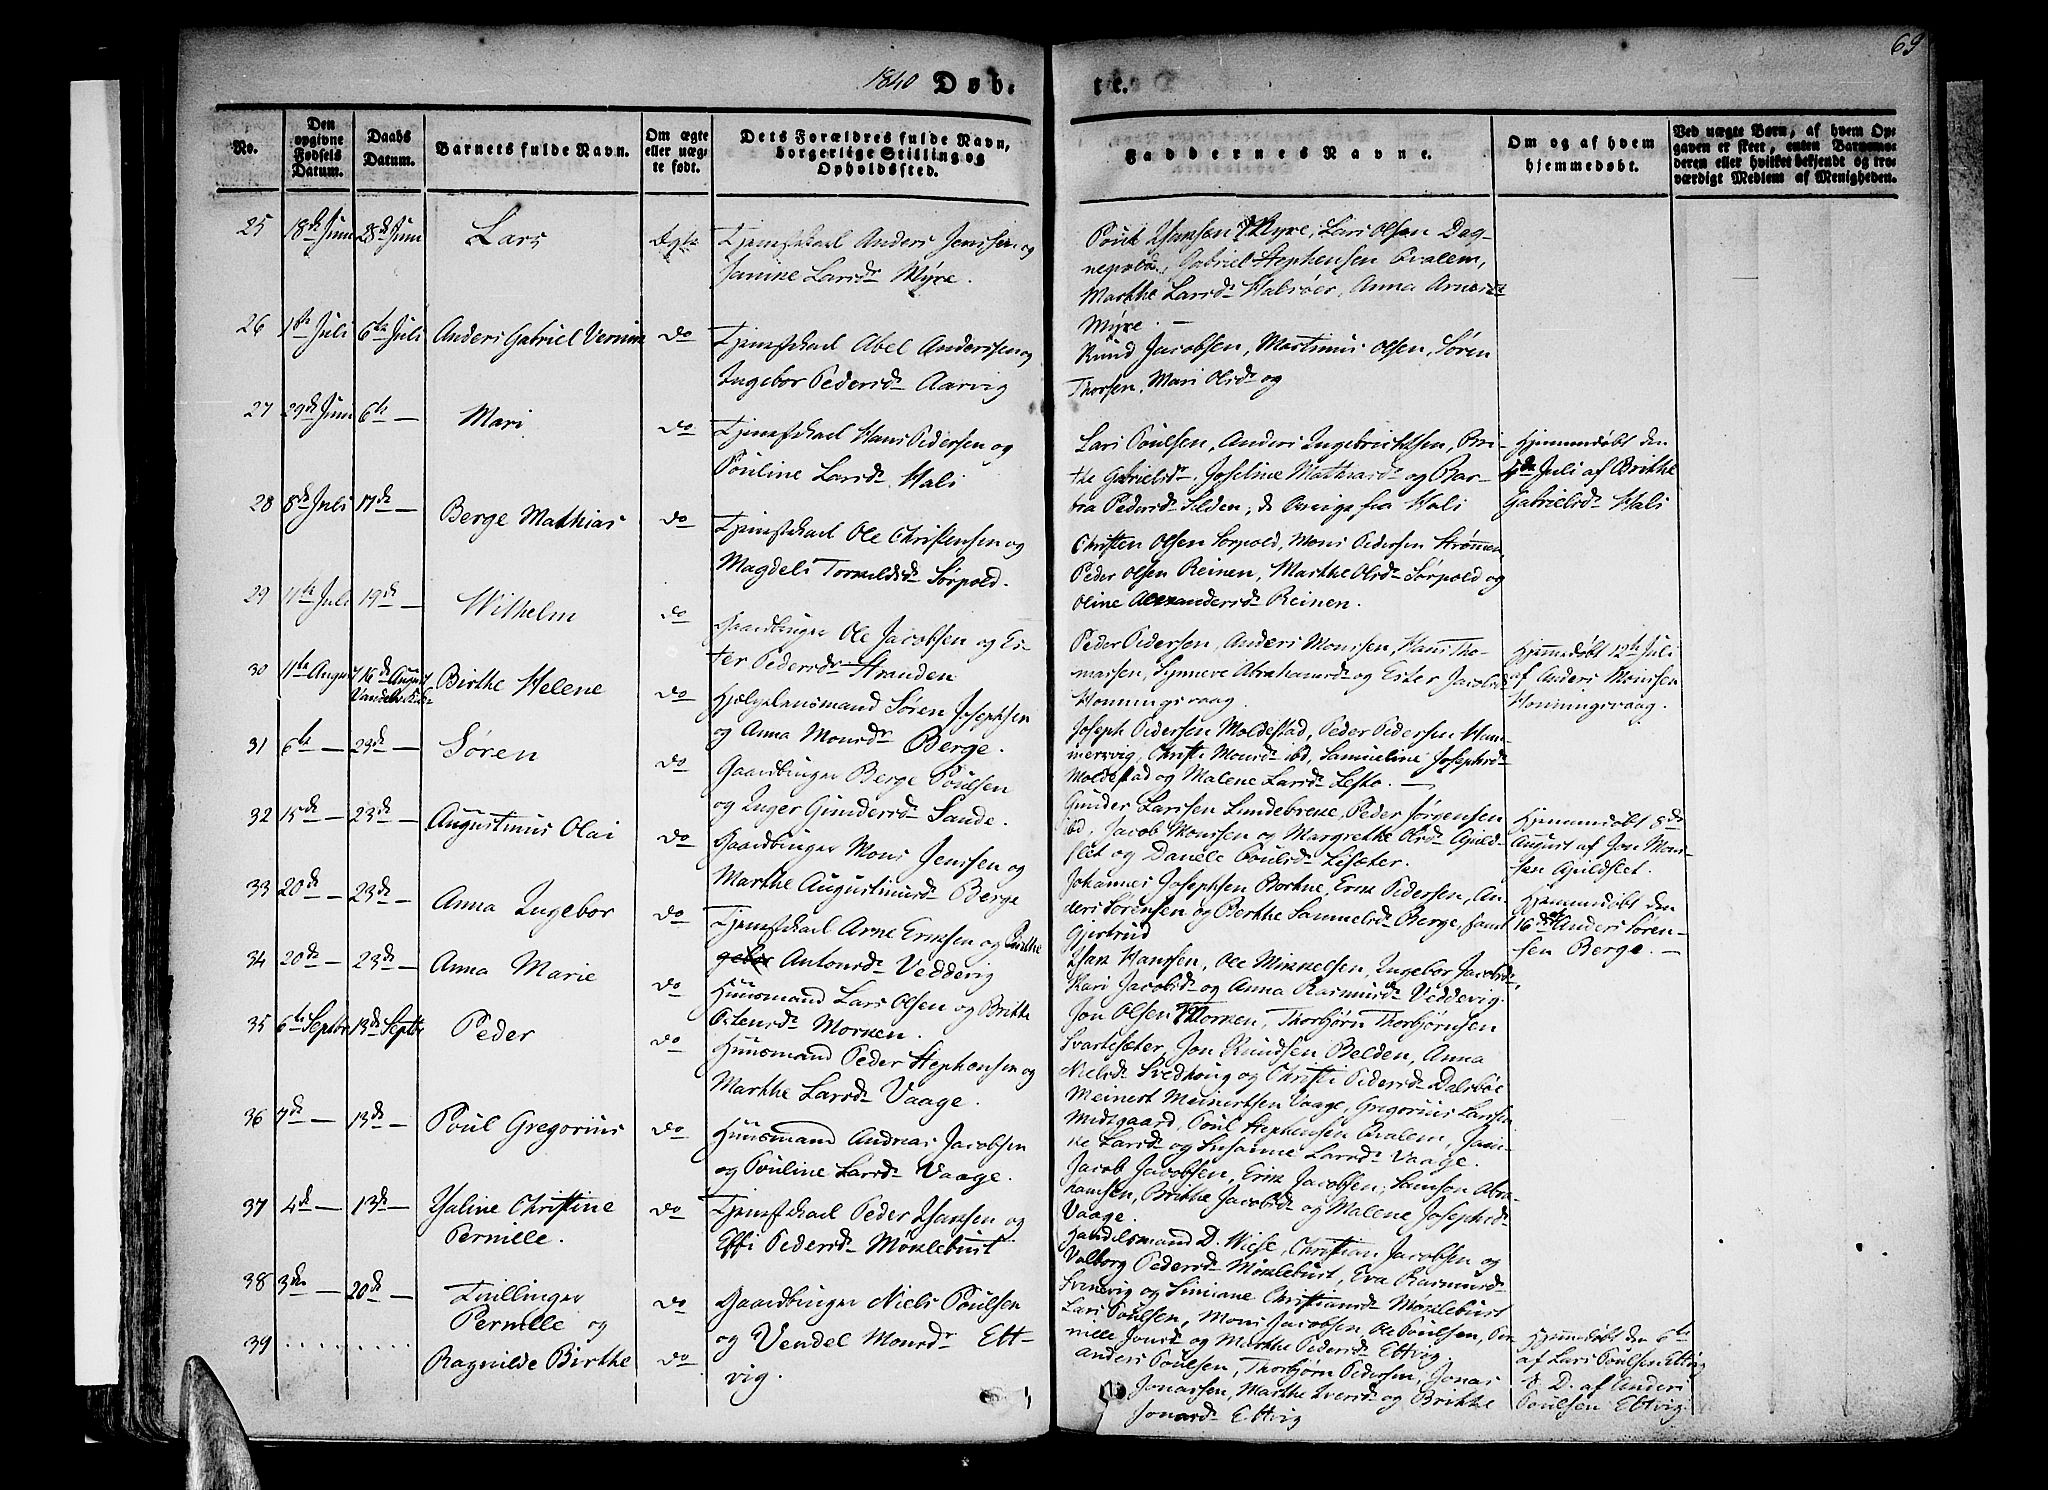 69
1840 Døb-
te.
No.
Den opgivne Fødsels Datum.
Daabs Datum.
Barnets fulde Navn.
Om ægte eller uægte født.
Dets Forældres fulde Navn, borgerlige Stilling og Opholdssted.
Faddernes Navne.
Om og af hvem hjemmedøbt.
Ved uægte Børn, af hvem Opgaven er skeet, enten Barnemoderen eller hvilket bekjendt og troværdigt Medlem af Menigheden.
25 18de Juni 28de Juni Lars Ægte Tjenestekarl Anders Jenssen og
Janine Larsdr Myre.
Lars Olsen Dag-
Gabriel Stephensen Qvalem,
Marthe Larsdr Halsøer, Anna
Myre. —
26 1ste Juli 6te Juli Anders Gabriel do Tjenestekarl Abel Anderssen og
Ingebor Pedersdr Aarvig
Knud Jacobsen, Martinus Olsen, Søren
Thorsen, Mari Olsdr og
27 29de Juni 6te — Mari do Tjenestekarl Hans Pedersen og
Pouline Larsdr Hals
Lars Poulsen, Anders Ingebrichtsen, Bri-
the Gabrielsdr, Joseline og Bar-
bra Pedersdr Selden, de øvrige fra Hals
Hjemmedøbt den
Juli af Brithe
Gabrielsdr Hals
28 8de Juli 17de — Berge Mathias do Tjenestekarl Ole Christensen og
Magdeli Sørpold.
Christen Olsen Sørpold, Mons Pedersen Strømmen
Peder Olsen Reinen, Marthe Olsdr Sørpold og
Oline Alexandersdr Reinen.
29 11te Juli 19de — Wilhelm do Gaardbruger Ole Jacobsen og Es-
ter Pedersdr Stranden
Peder Pedersen, Anders Monssen, Hans Tho-
massen, Synneve Abrahamsdr og Ester Jacobsdr
Honningsvaag.
Hjemmedøbt 12te Juli
af Anders Monssen
Honningsvaag.
30 11te August 16de August Birthe Helene do Hjelpelensmand Søren Josephsen
og Anna Monsdr Berge.
Joseph Pedersen Moldestad, Peder Pedersen Ham-
mersvig, Christi Monsdr ibd, Samueline Josephsdr
Moldestad og Malene Larsdr Lesto. —
31 6te — 23de — Søren do Gaardbruger Berge Poulsen
og Inger Gundersdr Sande.
Gunder Larssen Lundebrekke, Peder Jørgensen
ibd, Jacob Monssen og Margrethe Olsdr Apuld-
slet og Danele Poulsdr Lisæter.
Hjemmedøbt 8de
August af Jon Mons-
sen Apuldslet.
32 15de — 23de — Augustinus Olai do Gaardbruger Mons Jenssen og
Marthe Augustinusdr Berge
Johannes Josephsen Borkne, Erik Pedersen, An-
ders Sørensen og Berthe Samuelsdr Berge, samt
Gjertrud
Hjemmedøbt den
16de af Anders Søren-
sen Berge. —
33 20de — 23de — Anna Ingebor do Tjenestekarl Arne Eriksen og Brithe
Antonsdr Veddevig
Isak Hanssen, Ole Mikkelsen, Ingebor Jacobsdr,
Kari Jacobsdr og Anna Rasmusdr Veddevig.
34 20de — 23de — Anna Marie do Huusmand Lars Olsen og Brithe
Ostensdr Morken.
Jon Olsen Morken, Thorbjørn Thorbjørnsen
Svartesæter, Jon Knudsen Belden, Anna
Nelsdr Svedhoug og Christi Pedersdr Dalsbøe
35 6te Septbr 13de Septbr Peder do Huusmand Peder Stephensen og
Marthe Larsdr Vaage.
Meinert Meinertsen Vaage, Gregorius Larssen
Midtgaard, Poul Stephensen Qvalem, Jani-
ne Larsdr og Susanne Larsdr Vaage.
36 7de — 13de — Poul Gregorius do Huusmand Andreas Jacobsen
og Pouline Larsdr Vaage.
Jacob Jacobsen, Erik Jacobsen, Samson Abra-
hamsen, Brithe Jacobsdr og Malene Josephsdr
Vaage.
37 4de — 13de — Christine
Pernille. do Tjenestekarl Peder Hansen og
Effi Pedersdr Møklebust
Handelsmand D. Wiese, Christian Jacobsen og
Valborg Pedersdr Møklebust, Eva Rasmusdr
Svinevig og Simiane Christiansdr Møklebust
38 3die — 20de — Tvillinger
Pernille og do Gaardbruger Niels Poulsen
og Vendel Monsdr Ett-
vig.
Lars Poulsen, Mons Jacobsen, Ole Poulsen, Per-
nille Jonsdr og Marthe Pedersdr Ettvig
Hjemmedøbt den 6te
af Lars Poulsen Ettvig
39 . . . . . . . . . Ragnilde Birthe do
Anders Poulsen, Thorbjørn Pedersen, Jonas
Jonassen, Marthe Iversdr og Brithe
Jonasdr Ettvig
s. D. af Anders
Poulsen Ettvig.